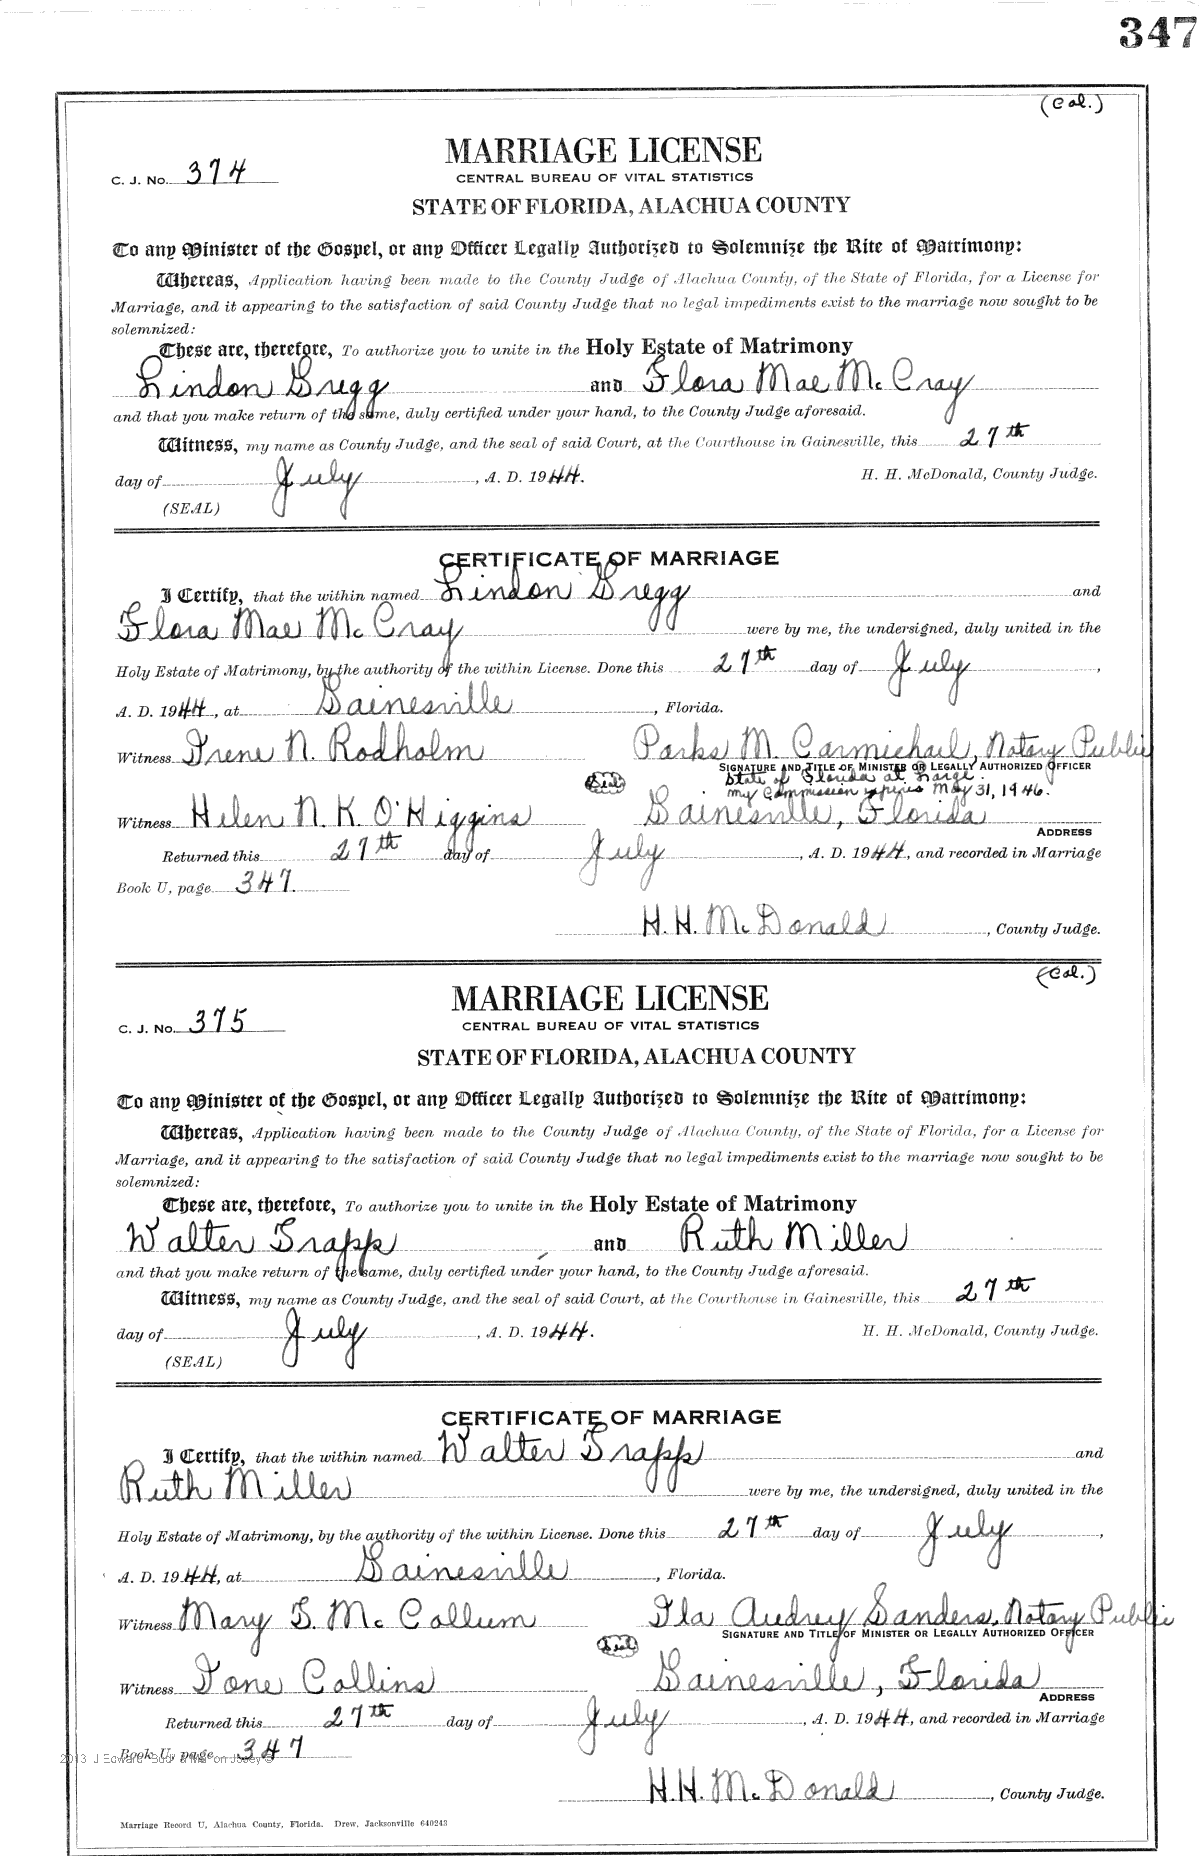 347
(Col.)
MARRIAGE LICENSE
C. J. No. 374
CENTRAL BUREAU OF VITAL STATISTICS
STATE OF FLORIDA, ALACHUA COUNTY
To any Minister of the Gospel, or any Officer Legally Authorized to Solemnize the Rite of Matrimony:
Whereas, Application having been made to the County Judge of Alachua County, of the State of Florida, for a License for
Marriage, and it appearing to the satisfaction of said County Judge that no legal impediments exist to the marriage now sought to be
solemnized:
These are, therefore, To authorize you to unite in the Holy Estate of Matrimony
Lindon Gregg and Flora Mae McCray
and that you make return of the same, duly certified under your hand, to the County Judge aforesaid.
Witness, my name as County Judge, and the seal of said Court, at the Courthouse in Gainesville, this 27th
day of July, A. D. 1944. H. H. McDonald, County Judge.
(SEAL)
CERTIFICATE OF MARRIAGE
I Certify, that the within named Lindon Gregg and
Flora Mae McCray were by me, the undersigned, duly united in the
Holy Estate of Matrimony, by the authority of the within License. Done this 27th day of July,
A. D. 1944, at Gainesville, Florida.
Witness Irene N. Rodholm Parks M. Carmichael, Notary Public
SIGNATURE AND TITLE OF MINISTER OR LEGALLY AUTHORIZED OFFICER
State of Florida at Large.
(Seal) My Commission expires May 31, 1946.
Witness Helen N. K. O'Higgins Gainesville, Florida
ADDRESS
Returned this 27th day of July, A. D. 1944, and recorded in Marriage
Book U, page 347.
H. H. McDonald, County Judge.
(Col.)
MARRIAGE LICENSE
C. J. No. 375
CENTRAL BUREAU OF VITAL STATISTICS
STATE OF FLORIDA, ALACHUA COUNTY
To any Minister of the Gospel, or any Officer Legally Authorized to Solemnize the Rite of Matrimony:
Whereas, Application having been made to the County Judge of Alachua County, of the State of Florida, for a License for
Marriage, and it appearing to the satisfaction of said County Judge that no legal impediments exist to the marriage now sought to be
solemnized:
These are, therefore, To authorize you to unite in the Holy Estate of Matrimony
Walter Trapp and Ruth Miller
and that you make return of the same, duly certified under your hand, to the County Judge aforesaid.
Witness, my name as County Judge, and the seal of said Court, at the Courthouse in Gainesville, this 27th
day of July, A. D. 1944. H. H. McDonald, County Judge.
(SEAL)
CERTIFICATE OF MARRIAGE
I Certify, that the within named Walter Trapp and
Ruth Miller were by me, the undersigned, duly united in the
Holy Estate of Matrimony, by the authority of the within License. Done this 27th day of July,
A. D. 1944, at Gainesville, Florida.
Witness Mary McCollum Ila Audrey Sanders, Notary Public
SIGNATURE AND TITLE OF MINISTER OR LEGALLY AUTHORIZED OFFICER
(Seal)
Witness Collins Gainesville, Florida
ADDRESS
Returned this 27th day of July, A. D. 1944, and recorded in Marriage
Book U, page 347
H. H. McDonald, County Judge.
Marriage Record U, Alachua County, Florida. Drew, Jacksonville 640243